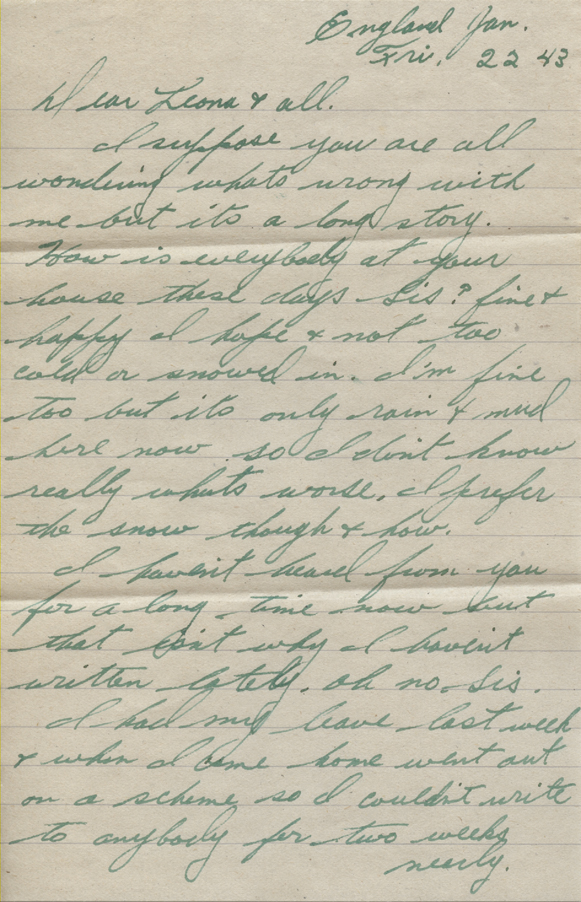 England Jan.
Fri. 22 43
Dear Leona & all.
I suppose you are all
wondering whats wrong with
me but its a long story.
How is everybody at your
house these days Sis? fine &
happy I hope & not too
cold or snowed in. I'm fine
too but its only rain & mud
here now so I don't know
really whats worse. I prefer
the snow though & how.
I haven't heard from you
for a long time now but
that isn't why I haven't
written lately. oh no. Sis.
I had my leave last week
& when I came home went out
on a scheme so I couldn't write
to anybody for two weeks
nearly.